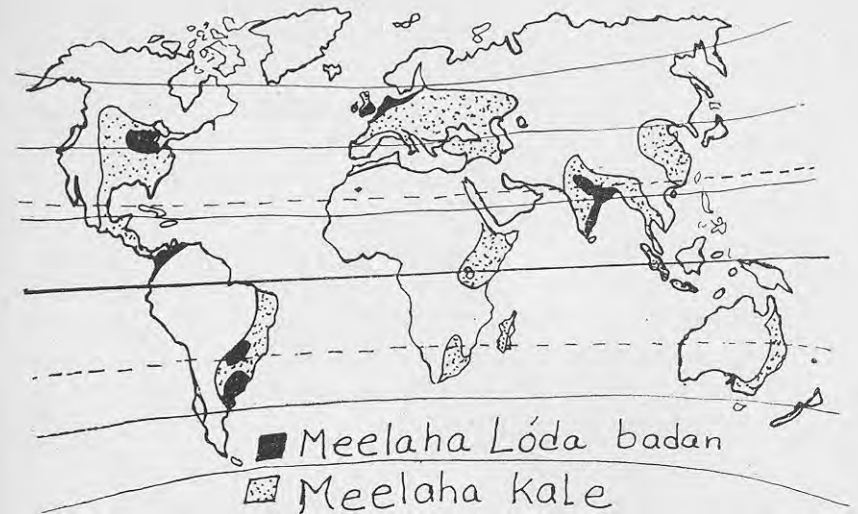 Meelaha Lóda badan
Meelaha Kale